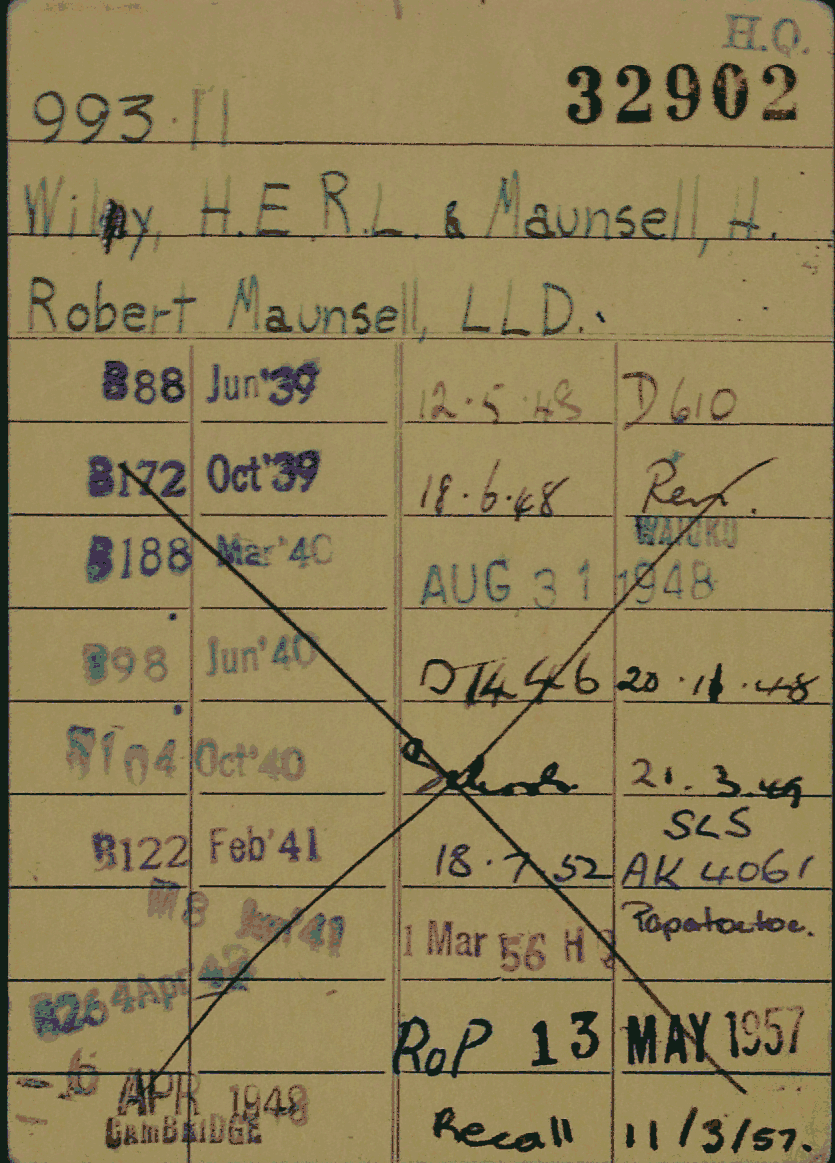 H.Q.
32902
993.11
Wily, H.E.R.L. & Maunsell, H.
Robert Maunsell, LLD.
B88 Jun'39 12.5.48 D610
B172 Oct'39 18.6.48 Ren.
B188 Mar'40 WAIUKU
AUG 31 1948
B98 Jun'40 D1446 20.11.48
B104 Oct'40 Schools 21.3.49
SLS
B122 Feb'41 18.7.52 AK 4061
M8 Jun'41 1 Mar 56 H Papatoetoe.
B264 Apr 42
RoP 13 MAY 1957
APR 1948
CAMBRIDGE
Recall 11/3/57.